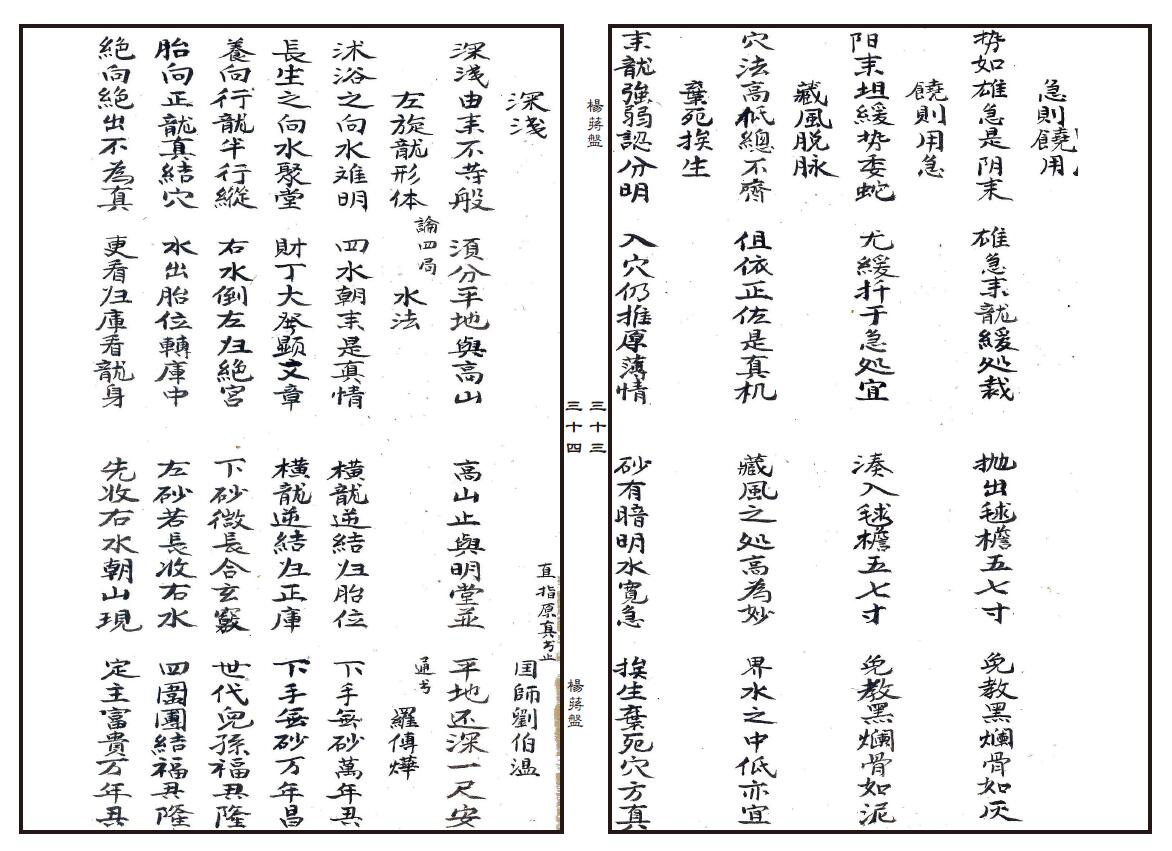 急則饒用
势如雄急是阴耒 雄急耒龍緩処裁 抛出毬檐五七寸 免教黑爛骨如灰
饒則用急
阳耒坦緩势委蛇 尤緩扦于急処宜 湊入毬檐五七寸 免教黑爛骨如泥
藏風脱脉
穴法高低總不齊 但依正佐是真机 藏風之処高為妙 界水之中低亦宜
棄死挨生
耒龍強弱認分明 入穴仍推原薄情 砂有暗明水寬急 挨生棄死穴方真
楊蔣盤
三十三
三十四
楊蔣盤
直指原真艻止
深淺 国師劉伯温
深淺由耒不䓁般 須分平地與高山 高山止與明堂並 平地还深一尺安
左旋龍形体 論四局 水法 通书 羅傳燁
沐浴之向水难明 四水朝耒是真情 橫龍逆結归胎位 下手無砂萬年丑
長生之向水聚堂 財丁大發顕文章 橫龍逆結归正庫 下手無砂万年昌
養向行龍半行縱 右水倒左归絕宮 下砂微長合玄竅 世代兒孫福丑隆
胎向正龍真結穴 水出胎位轉庫中 左砂若長收右水 四圍團結福丑隆
絕向絕出不為真 更看归庫看龍身 先收右水朝山現 定主富貴万年丑